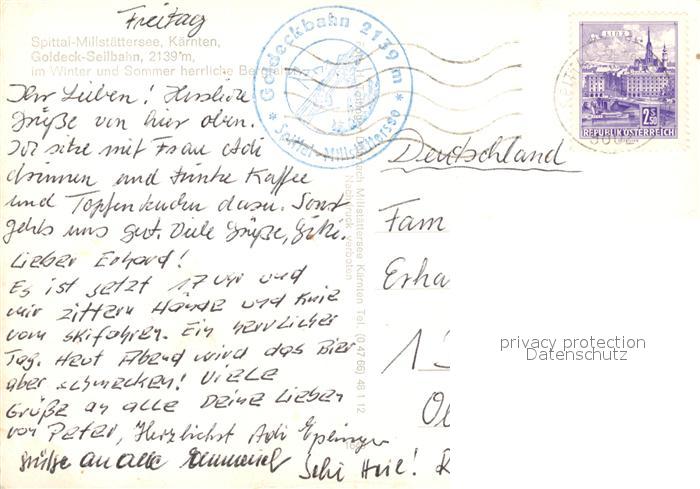 Freitag
Spittal-Millstättersee, Kärnten,
Goldeck-Seilbahn, 2139 m,
im Winter und Sommer herrliche
Goldeckbahn 2139 m
* Spittal-Millstättersee *
LINZ
2 S 50
REPUBLIK ÖSTERREICH
Ihr Lieben! Herzliche
Grüße von hier oben.
Ich sitze mit Frau Adi
drinnen und trinke Kaffee
und Topfenkuchen dazu. Sonst
gehts uns gut. Viele Grüße,
Lieber Erhard!
Es ist jetzt 17 Uhr und
mir zittern Hände und Knie
vom Skifahren. Ein herrlicher
Tag. Heut Abend wird das Bier
aber schmecken! Viele
Grüße an alle Deine Lieben
von Peter, Herzlichst Adi
Grüße an alle
Schi Heil!
Millstättersee Kärnten Tel. (0 47 66) 46 1 12
verboten
Deutschland
Fam
Erha
privacy protection
Datenschutz